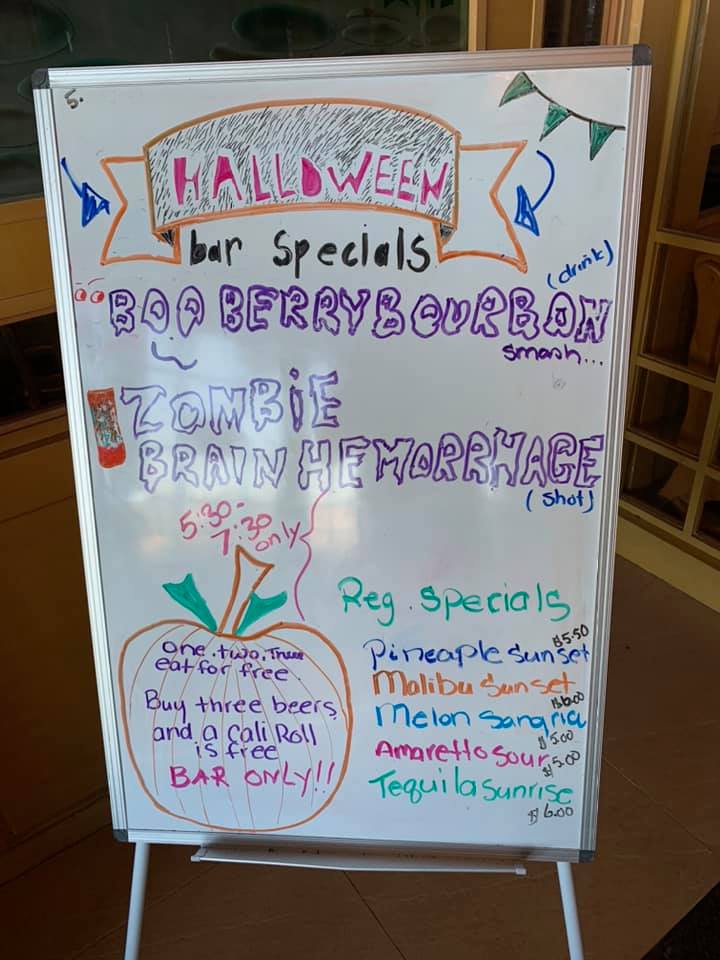 5.
HALLOWEEN
bar Specials
(drink)
BOO BERRY BOURBON
smash...
ZOMBiE
BRAIN HEMORRHAGE
(Shot)
5:30-
7:30
only
one, two, Three
eat for free.
Buy three beers
and a cali Roll
is free
BAR ONLY!!
Reg. Specials
$5.50
Pineapple Sunset
Malibu Sunset
$6.00
Melon Sangria
$5.00
Amaretto Sour $5.00
Tequila Sunrise
$6.00